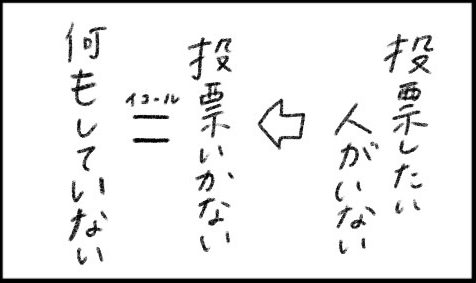 投票したい
人がいない
投票いかない
イコール
何もしていない